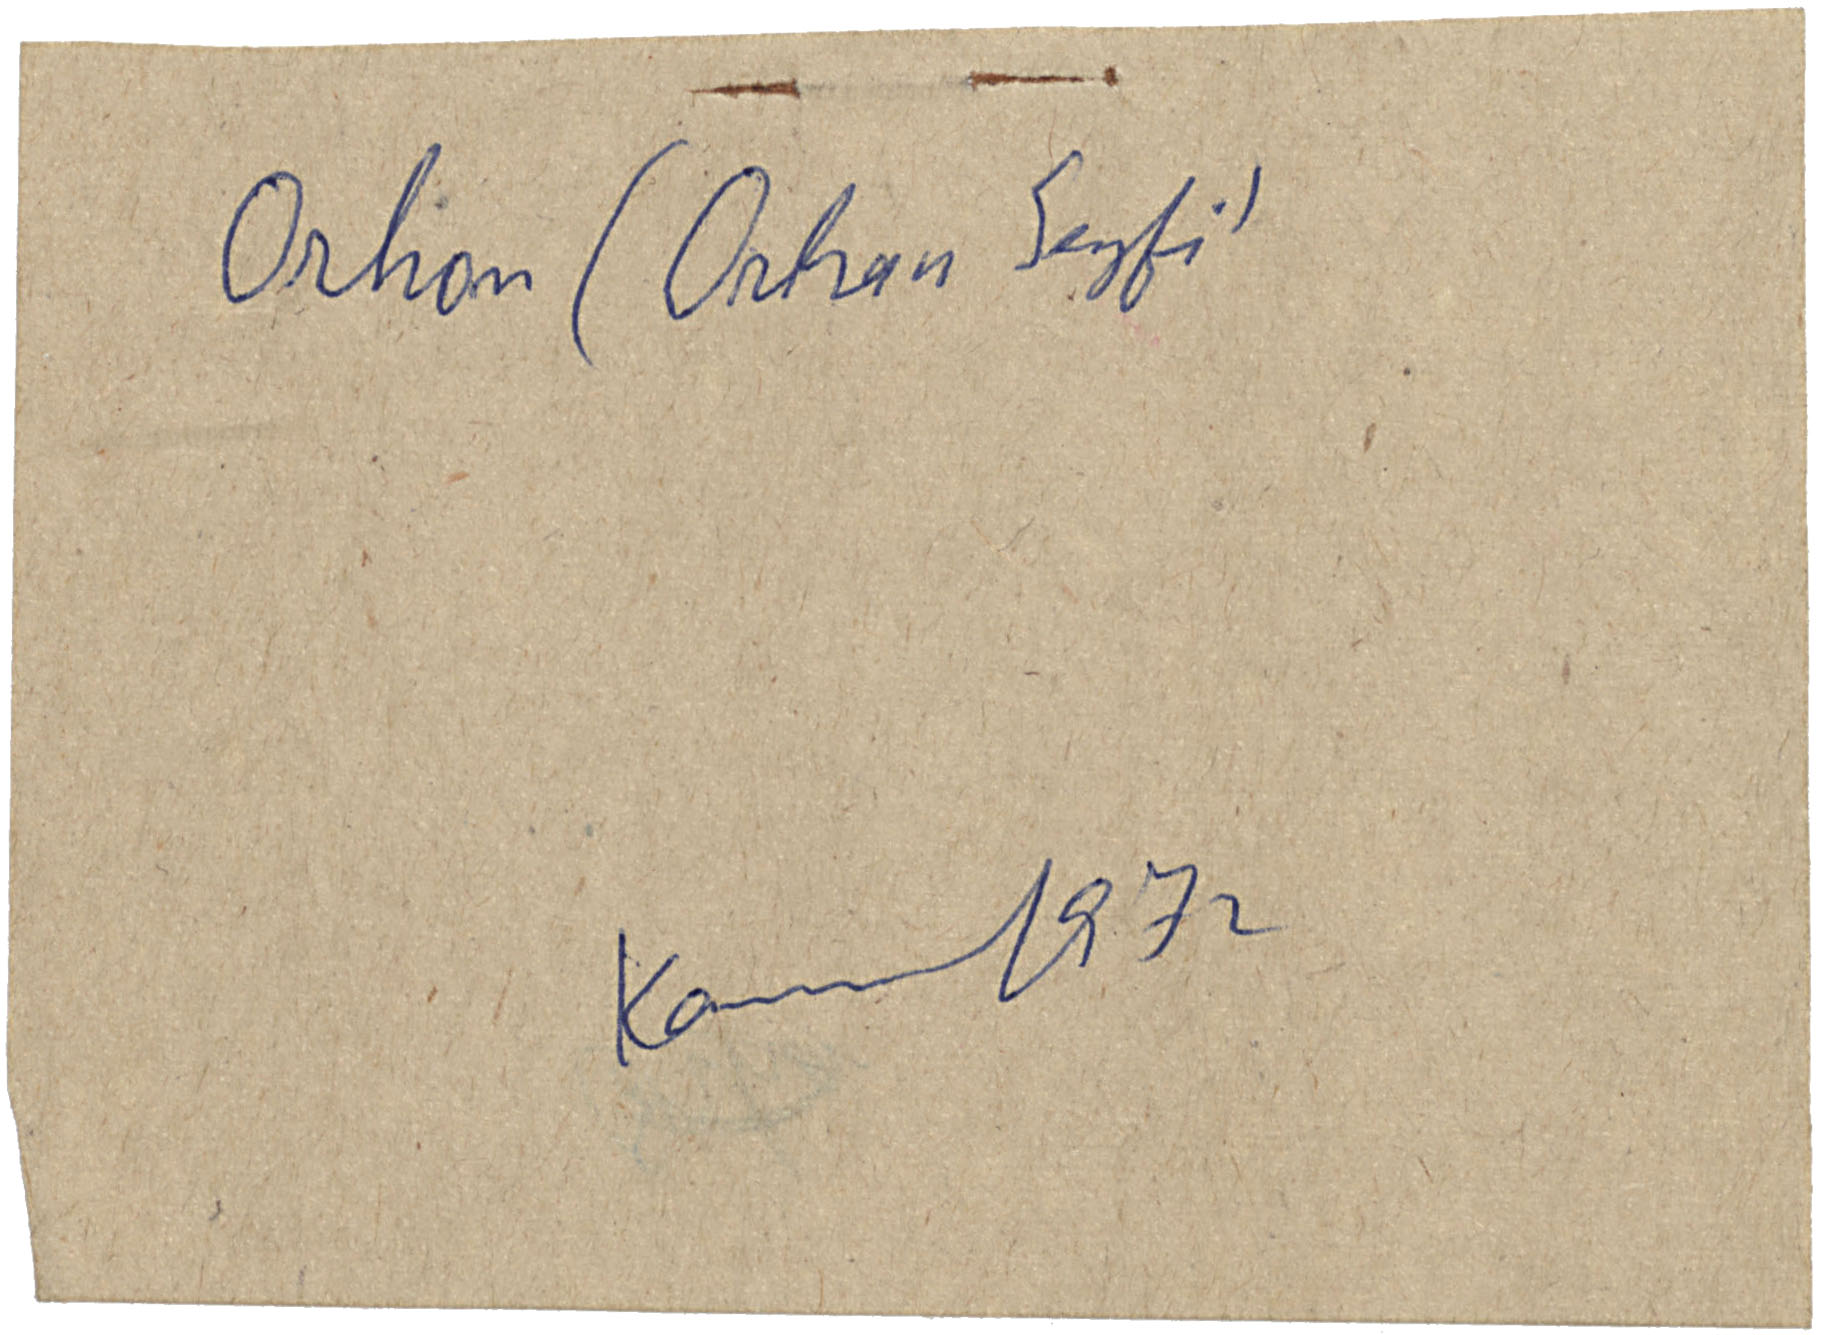 Orhon (Orhan Seyfi)
1972